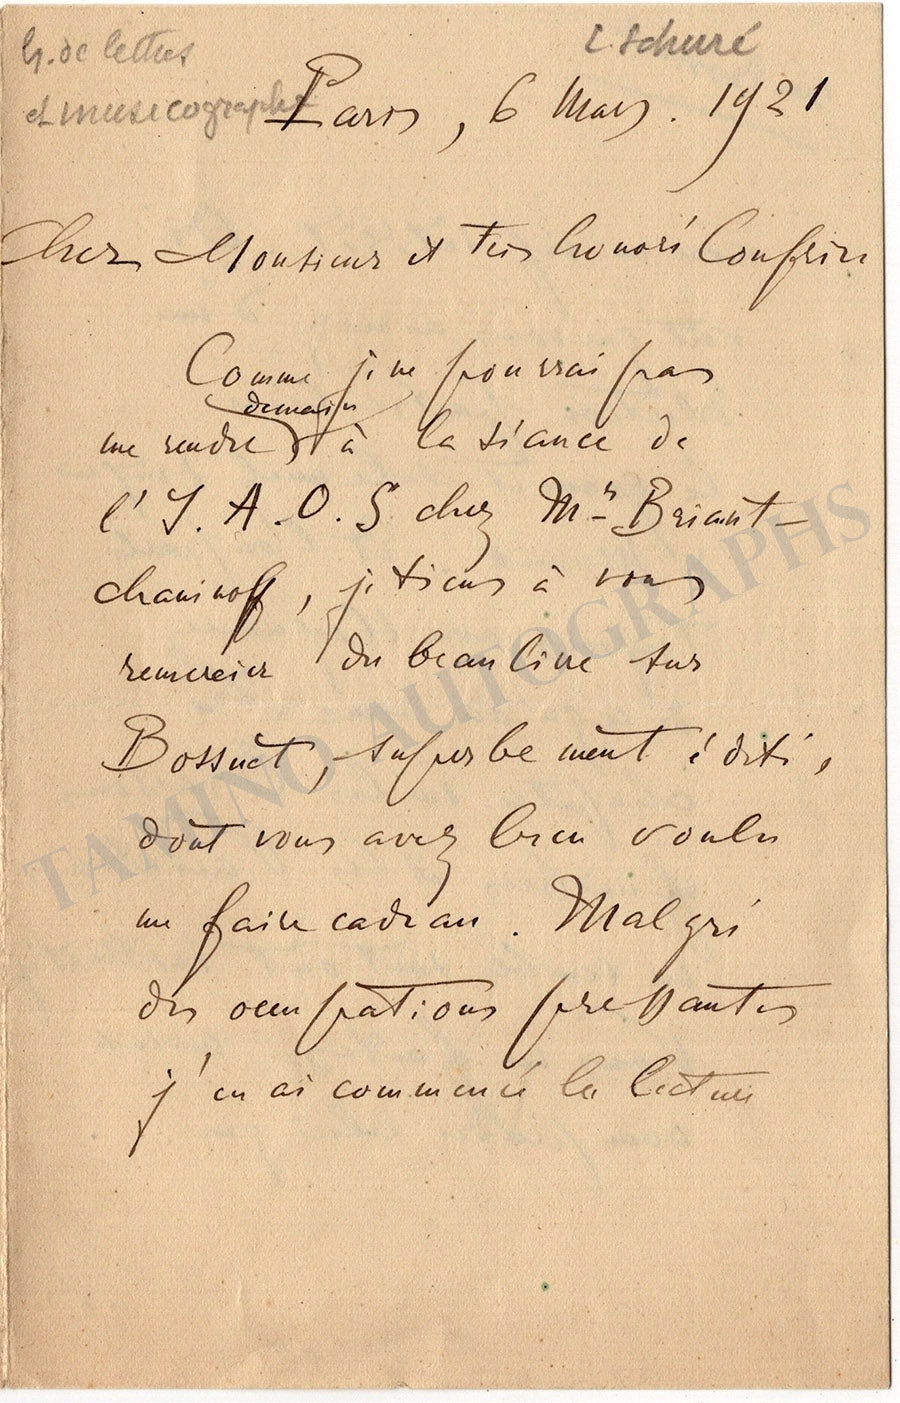 h. de lettres
E Schuré
et musicographe
Paris, 6 Mars. 1921
Cher Monsieur et très honoré Confrère
Comme je ne pourrai pas
demain
me rendre à la séance de
l'I. A. O. S chez Mr Briant-
chaninoff, je tiens à vous
remercier du beau livre sur
Bossuet, superbement édité,
dont vous avez bien voulu
me faire cadeau. Malgré
des occupations pressantes
j'en ai commencé la lecture
TAMINO AUTOGRAPHS